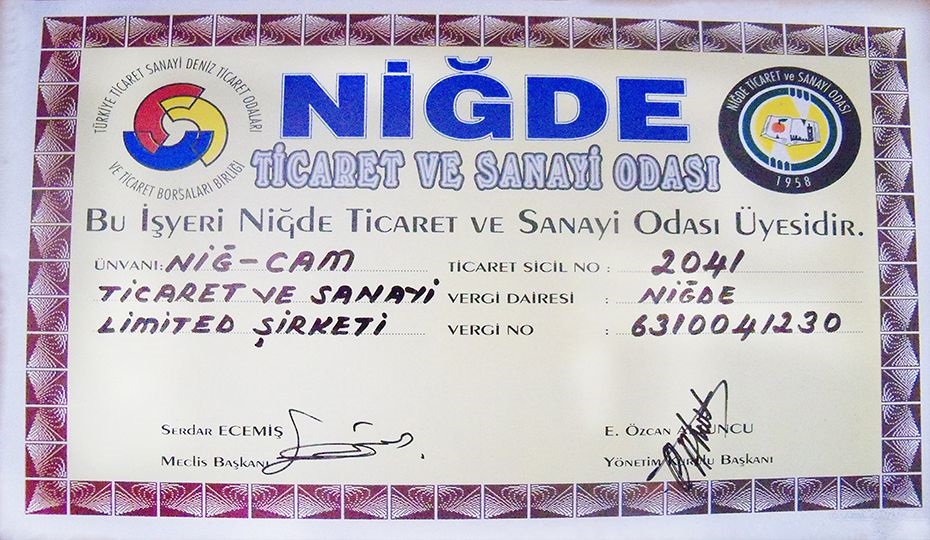 TÜRKİYE TİCARET SANAYİ DENİZ TİCARET ODALARI
VE TİCARET BORSALARI BİRLİĞİ
NİĞDE
TİCARET VE SANAYİ ODASI
NİĞDE TİCARET ve SANAYİ ODASI
1958
Bu İşyeri Niğde Ticaret ve Sanayi Odası Üyesidir.
ÜNVANI: NİĞ-CAM
TİCARET VE SANAYİ
LİMİTED ŞİRKETİ
TİCARET SİCİL NO : 2041
VERGİ DAİRESİ : NİĞDE
VERGİ NO : 6310041230
Serdar ECEMİŞ
Meclis Başkanı
E. Özcan
Yönetim Kurulu Başkanı